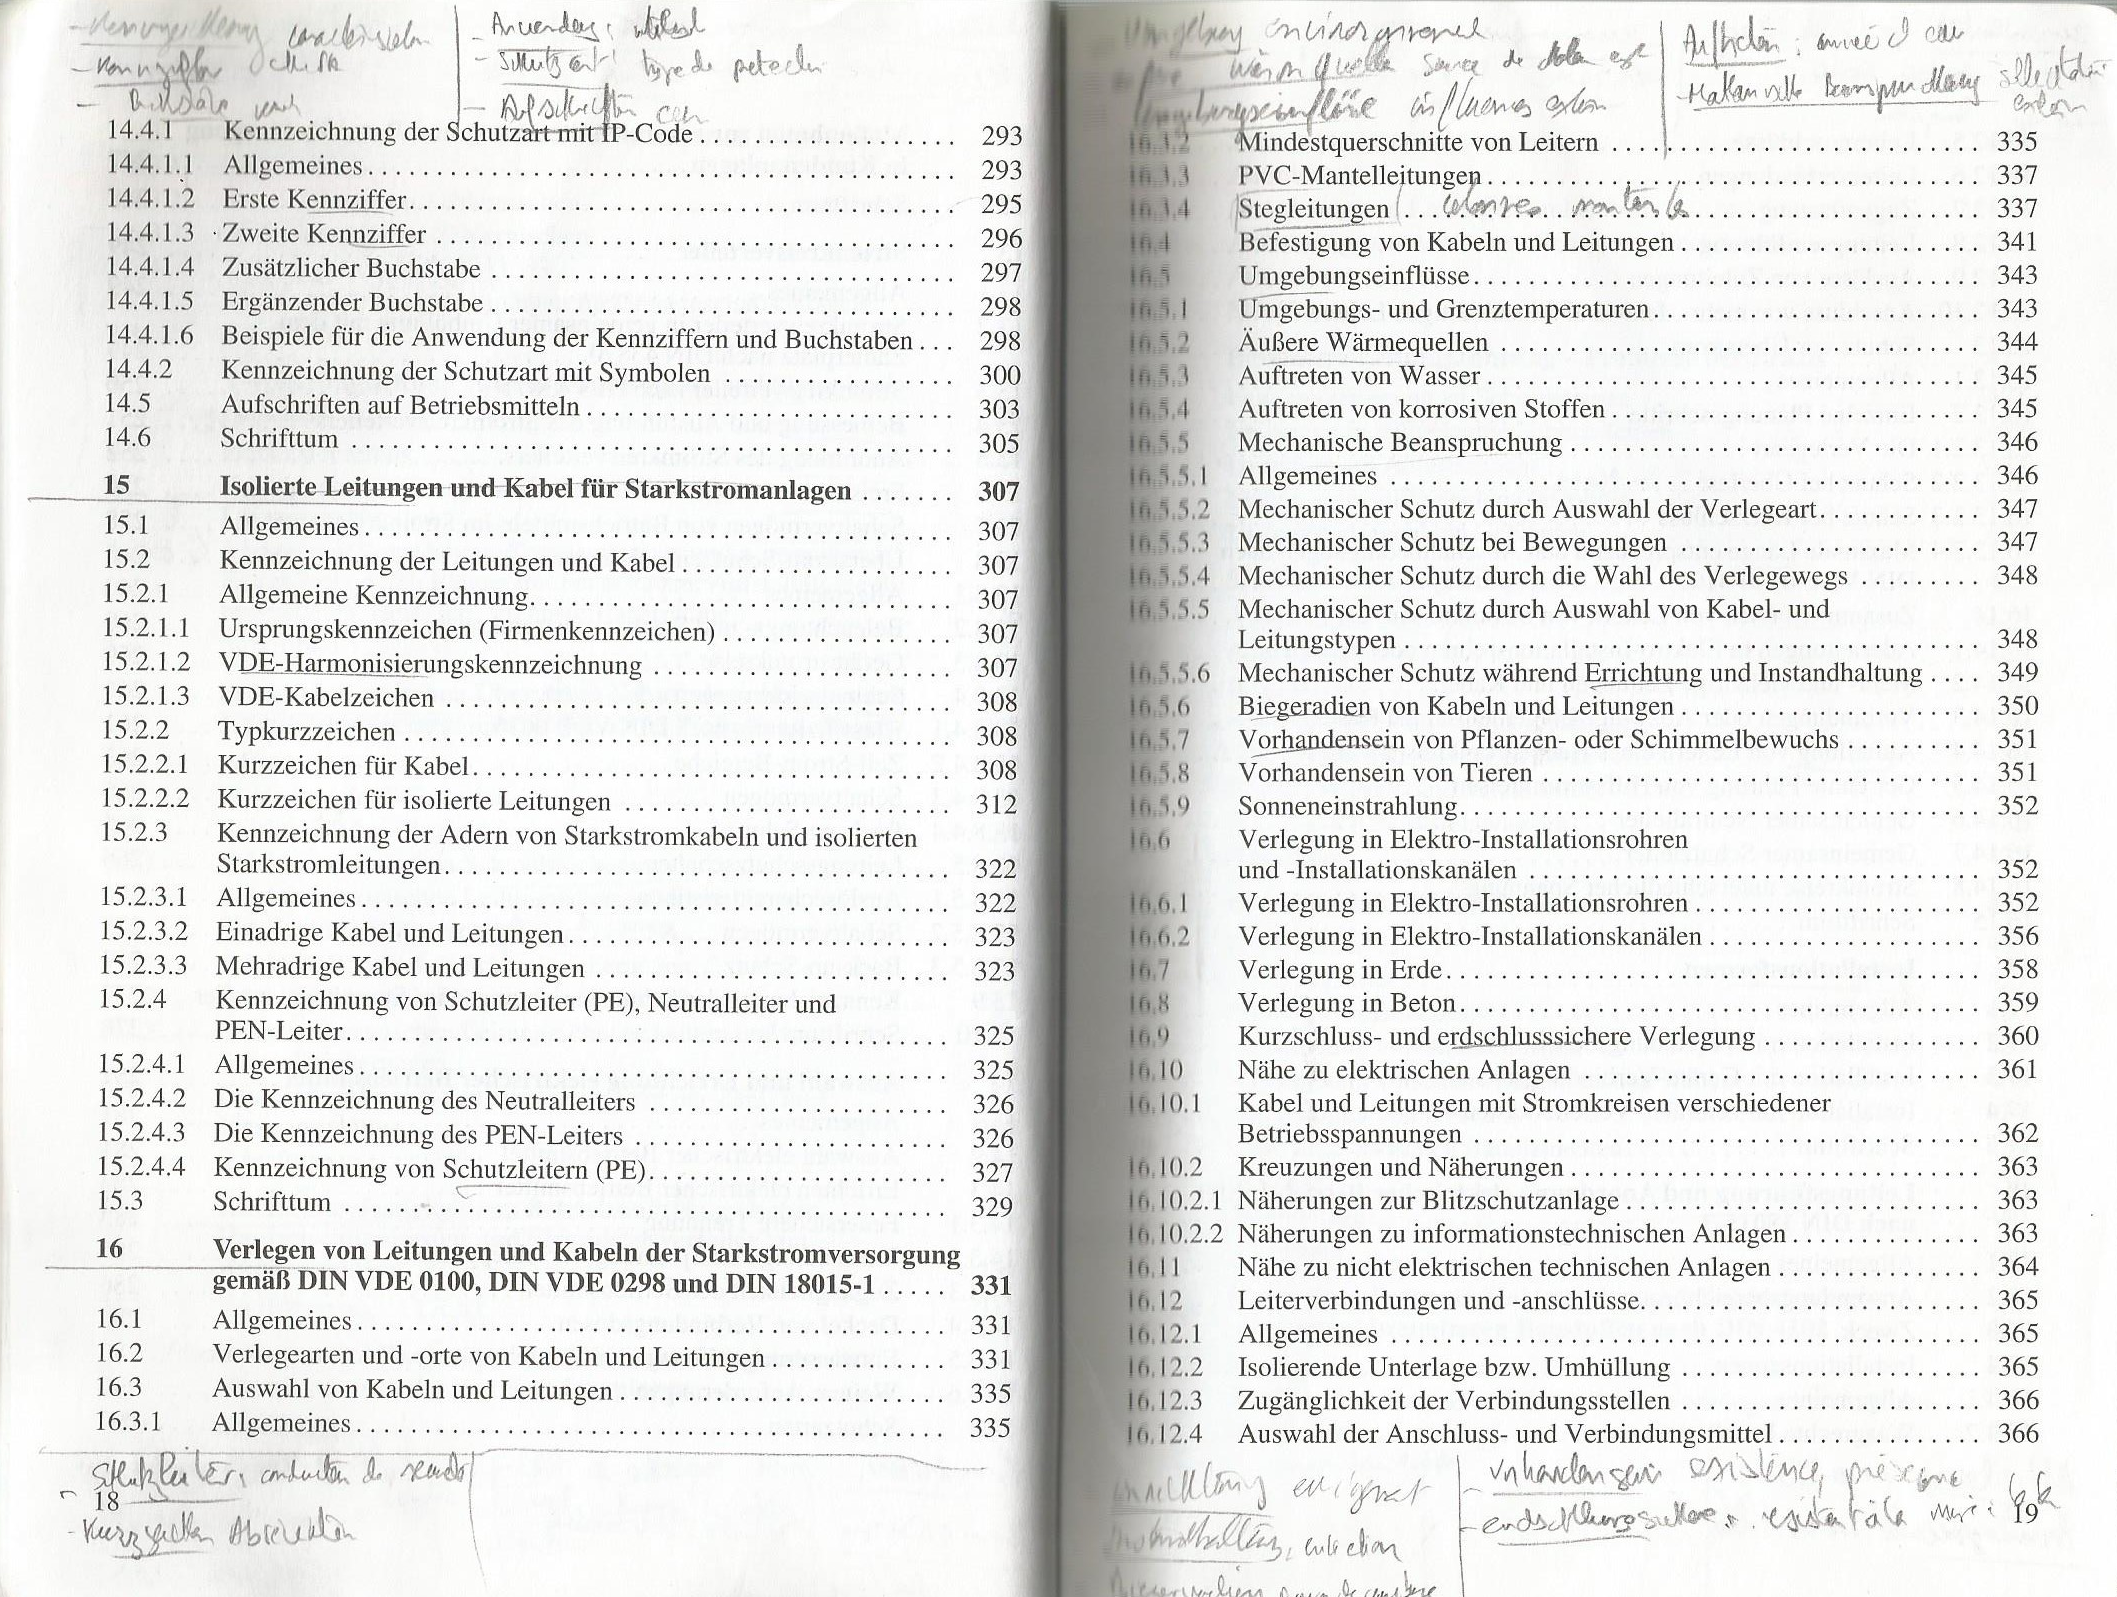 Anwendung: utilisat
Schutzart type de protectn
14.4.1 Kennzeichnung der Schutzart mit IP-Code 293
14.4.1.1 Allgemeines 293
14.4.1.2 Erste Kennziffer 295
14.4.1.3 Zweite Kennziffer 296
14.4.1.4 Zusätzlicher Buchstabe 297
14.4.1.5 Ergänzender Buchstabe 298
14.4.1.6 Beispiele für die Anwendung der Kennziffern und Buchstaben 298
14.4.2 Kennzeichnung der Schutzart mit Symbolen 300
14.5 Aufschriften auf Betriebsmitteln 303
14.6 Schrifttum 305
15 Isolierte Leitungen und Kabel für Starkstromanlagen 307
15.1 Allgemeines 307
15.2 Kennzeichnung der Leitungen und Kabel 307
15.2.1 Allgemeine Kennzeichnung 307
15.2.1.1 Ursprungskennzeichen (Firmenkennzeichen) 307
15.2.1.2 VDE-Harmonisierungskennzeichnung 307
15.2.1.3 VDE-Kabelzeichen 308
15.2.2 Typkurzzeichen 308
15.2.2.1 Kurzzeichen für Kabel 308
15.2.2.2 Kurzzeichen für isolierte Leitungen 312
15.2.3 Kennzeichnung der Adern von Starkstromkabeln und isolierten
Starkstromleitungen 322
15.2.3.1 Allgemeines 322
15.2.3.2 Einadrige Kabel und Leitungen 323
15.2.3.3 Mehradrige Kabel und Leitungen 323
15.2.4 Kennzeichnung von Schutzleiter (PE), Neutralleiter und
PEN-Leiter 325
15.2.4.1 Allgemeines 325
15.2.4.2 Die Kennzeichnung des Neutralleiters 326
15.2.4.3 Die Kennzeichnung des PEN-Leiters 326
15.2.4.4 Kennzeichnung von Schutzleitern (PE) 327
15.3 Schrifttum 329
16 Verlegen von Leitungen und Kabeln der Starkstromversorgung
gemäß DIN VDE 0100, DIN VDE 0298 und DIN 18015-1 331
16.1 Allgemeines 331
16.2 Verlegearten und -orte von Kabeln und Leitungen 331
16.3 Auswahl von Kabeln und Leitungen 335
16.3.1 Allgemeines 335
Schutzleiter:
18
Umgebung environnement
16.3.2 Mindestquerschnitte von Leitern 335
16.3.3 PVC-Mantelleitungen 337
16.3.4 Stegleitungen 337
16.4 Befestigung von Kabeln und Leitungen 341
16.5 Umgebungseinflüsse 343
16.5.1 Umgebungs- und Grenztemperaturen 343
16.5.2 Äußere Wärmequellen 344
16.5.3 Auftreten von Wasser 345
16.5.4 Auftreten von korrosiven Stoffen 345
16.5.5 Mechanische Beanspruchung 346
16.5.5.1 Allgemeines 346
16.5.5.2 Mechanischer Schutz durch Auswahl der Verlegeart 347
16.5.5.3 Mechanischer Schutz bei Bewegungen 347
16.5.5.4 Mechanischer Schutz durch die Wahl des Verlegewegs 348
16.5.5.5 Mechanischer Schutz durch Auswahl von Kabel- und
Leitungstypen 348
16.5.5.6 Mechanischer Schutz während Errichtung und Instandhaltung 349
16.5.6 Biegeradien von Kabeln und Leitungen 350
16.5.7 Vorhandensein von Pflanzen- oder Schimmelbewuchs 351
16.5.8 Vorhandensein von Tieren 351
16.5.9 Sonneneinstrahlung 352
16.6 Verlegung in Elektro-Installationsrohren
und -Installationskanälen 352
16.6.1 Verlegung in Elektro-Installationsrohren 352
16.6.2 Verlegung in Elektro-Installationskanälen 356
16.7 Verlegung in Erde 358
16.8 Verlegung in Beton 359
16.9 Kurzschluss- und erdschlusssichere Verlegung 360
16.10 Nähe zu elektrischen Anlagen 361
16.10.1 Kabel und Leitungen mit Stromkreisen verschiedener
Betriebsspannungen 362
16.10.2 Kreuzungen und Näherungen 363
16.10.2.1 Näherungen zur Blitzschutzanlage 363
16.10.2.2 Näherungen zu informationstechnischen Anlagen 363
16.11 Nähe zu nicht elektrischen technischen Anlagen 364
16.12 Leiterverbindungen und -anschlüsse 365
16.12.1 Allgemeines 365
16.12.2 Isolierende Unterlage bzw. Umhüllung 365
16.12.3 Zugänglichkeit der Verbindungsstellen 366
16.12.4 Auswahl der Anschluss- und Verbindungsmittel 366
existence, présence
19